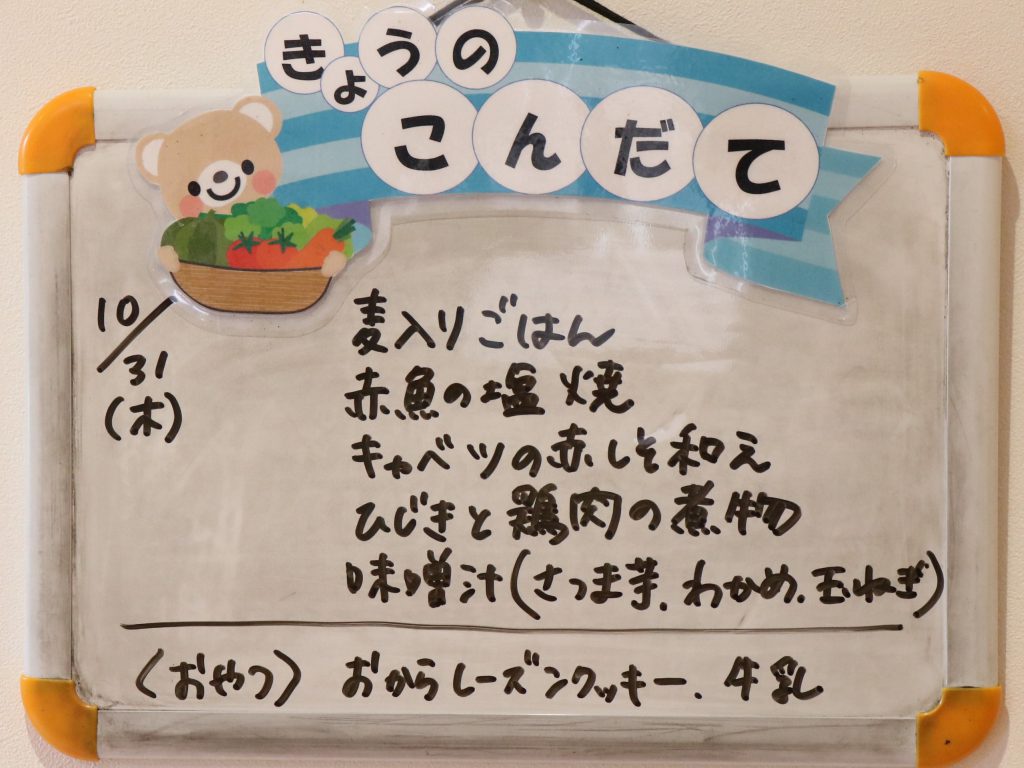 きょうの
こんだて
10/31
(木)
麦入りごはん
赤魚の塩焼
キャベツの赤しそ和え
ひじきと鶏肉の煮物
味噌汁(さつま芋.わかめ.玉ねぎ)
〈おやつ〉 おからレーズンクッキー.牛乳